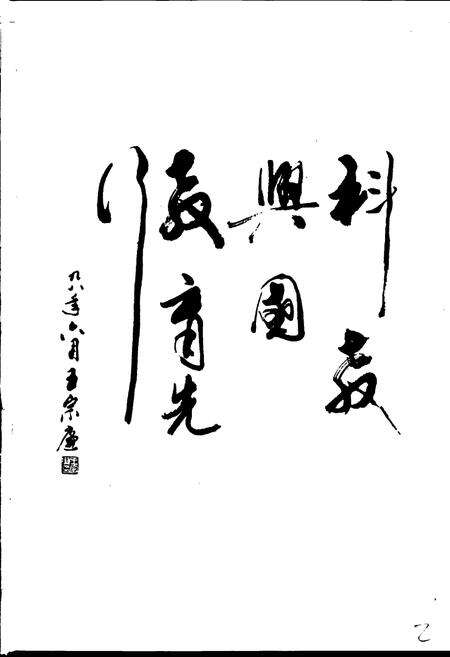 科教
興國
教育先
行
九八年六月王宗廉